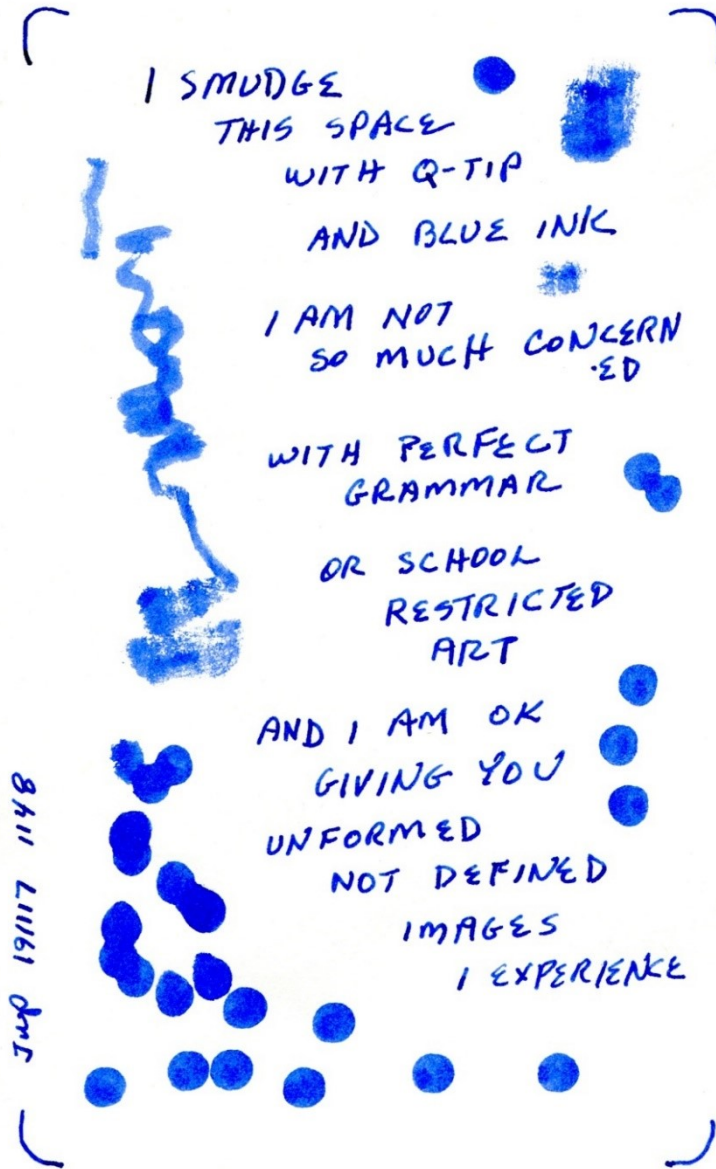 I SMUDGE
THIS SPACE
WITH Q-TIP
AND BLUE INK
I AM NOT
SO MUCH CONCERN
·ED
WITH PERFECT
GRAMMAR
OR SCHOOL
RESTRICTED
ART
AND I AM OK
GIVING YOU
UNFORMED
NOT DEFINED
IMAGES
I EXPERIENCE